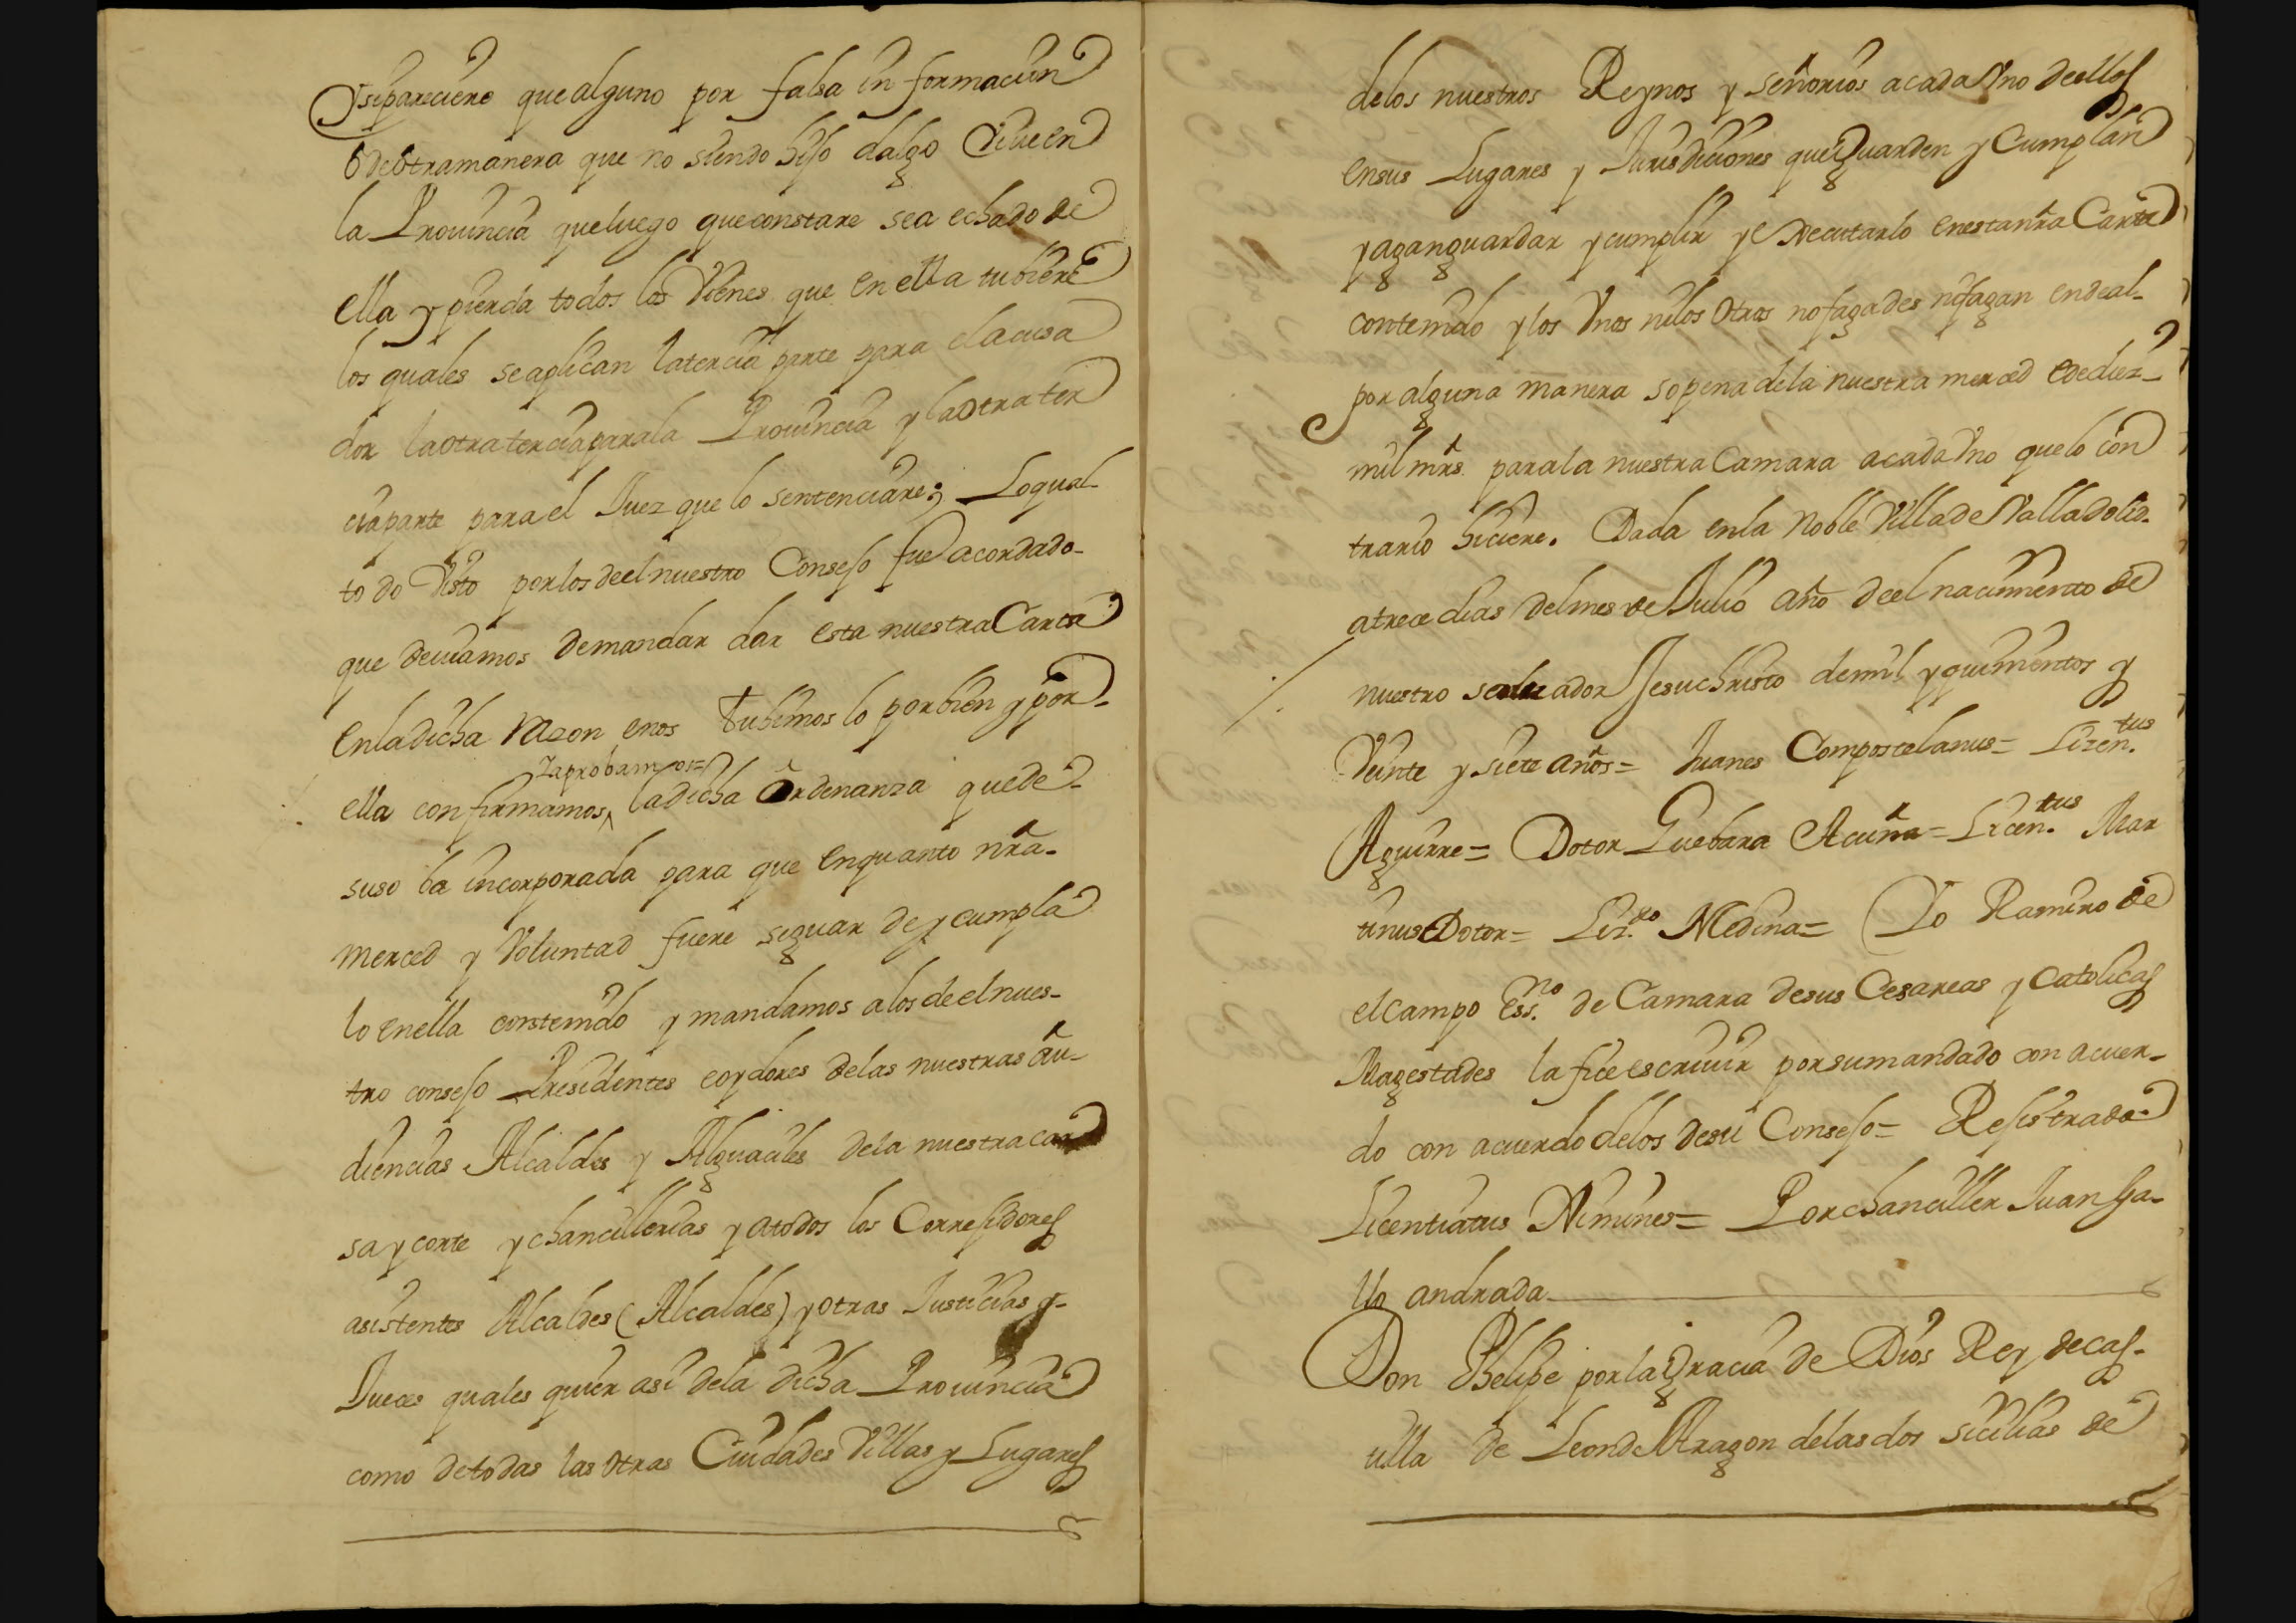 Ysipareciere quealguno por falsa in formacion
ô deôtramanera que no siendo hijo dalgo viue en
la Prouincia queluego queconstare sea echado de
ella y pierda todos los Vienes que en ella tubiere
los quales seaplican latercia parte para elacusa
dor laotraterciaparala Prouincia y laotrater
ciaparte parael Juez que lo sentenciare; Loqual
todo Visto porlos deelnuestro Consejo fue acordado
que deuiamos demandar dar esta nuestraCarta
Enladicha razon enos tubimos lo porbien y por
Yaprobamos=
ella confirmamos ladicha Ordenanza quede
suso ba incorporada para que enquanto nrâ
merced y Voluntad fuere seguar de y cumpla
lo enella contenido y mandamos alosdeelnues-
tro consejo Presidentes eoydores delas nuestras âu-
diencias Alcaldes y Alguaciles dela nuestra ca
sa y corte y chancillerias y atodos los Corregidores
asistentes Alcaldes (Alcaldes) y otras Justicias y
Jueces quales quier asi dela dicha Prouincia
como detodas las otras Ciudades Villas y Lugares
delos nuestros Reynos y señorios acada Vno deellos
ensus Lugares y Jurisdiciones queGuarden y Cumplan
yaganguardar ycumplir ye xecutarlo enestanrâ Carta
contenido ylos Vnos nilos otros nofagades nifagan endeal-
por alguna manera sopena dela nuestra merced edediez-
mil mrs. parala nuestra Camara acada Vno quelo con
trario hiciere. Dada enla Noble Villa de Valladolid.
atrece dias delmes de Julio año deel nacimiento de
nuestro saluador Jesuchristo demil y quinientos y
Veinte y siete años= Juanes Compostelanus= Lizen.tus
Aguirre= Dotor Guebara Acuña= Licen.tus Mar
tinus Dotor= Liz.do Medina= Yo Ramiro de
elcampo Ess.no de Camara desus Cesareas y Catolicas
Magestades la fice escriuir porsumandado con acuer-
do con acuerdo delos desu Consejo= Rejistrada
Licentiatus Ximines= Porchanciller Juan Ga-
llo andrada
Don Phelipe porlaGracia de Dios Rey decas-
tilla de Leon de Aragon delasdos sicilias de